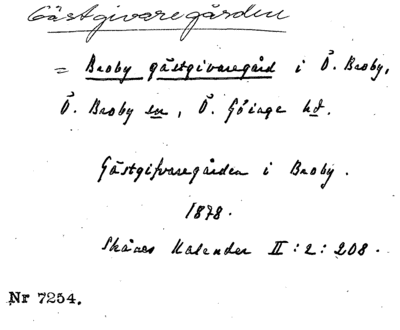 Gästgivaregården
= Broby gästgivaregård i Ö. Broby,
Ö. Broby sn, Ö. Göinge hd.
Gästgifvaregården i Broby.
1878.
Skånes Kalender II : 2 : 208.
Nr 7254.